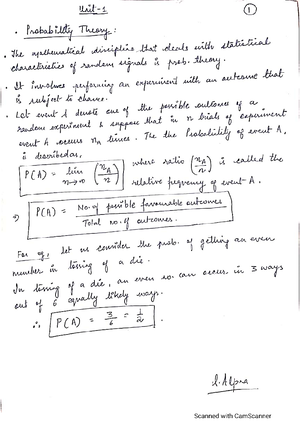 Unit-1
1
• Probability Theory:
• The mathematical discipline that deals with statistical
characteristics of random signals is prob. theory.
• It involves performing an experiment with an outcome that
is subject to chance.
• Let event A denote one of the possible outcomes of a
random experiment & suppose that in n trials of experiment
event A occurs nA times. The the Probability of event A,
is described as,
P(A) = lim n→∞ (nA/n) where ratio (nA/n) is called the
relative frequency of event A.
⇒ P(A) = No. of possible favourable outcomes / Total no. of outcomes.
For eg, let us consider the prob. of getting an even
number in tossing of a die.
In tossing of a die, an even no. can occur in 3 ways
out of 6 equally likely ways.
∴ P(A) = 3/6 = 1/2.
Scanned with CamScanner